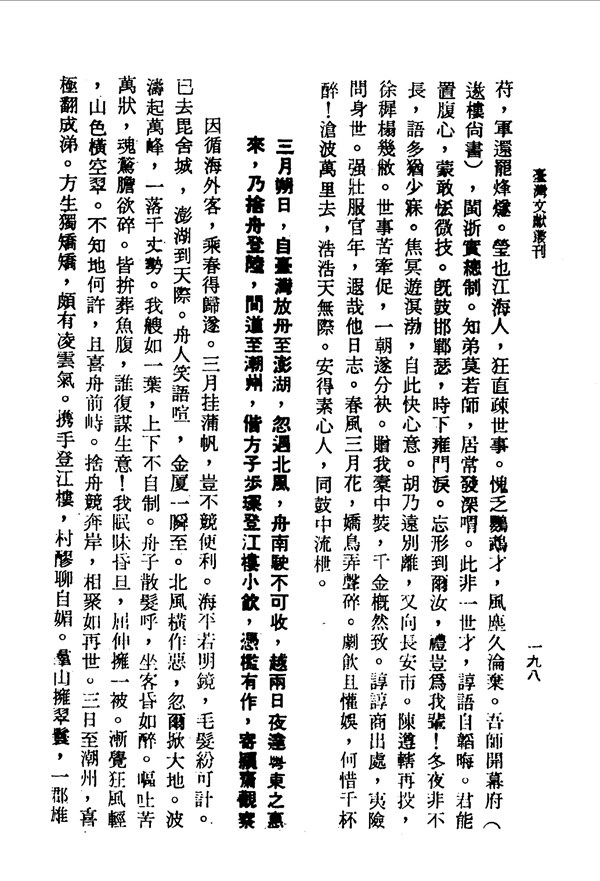 臺灣文獻叢刊
一九八
苻，軍還罷烽燧。瑩也江海人，狂直疎世事。愧乏鸚鵡才，風塵久淪棄。吾師開幕府（
逡樓尚書），閩浙實總制。知弟莫若師，居常發深喟。此非一世才，諄語自韜晦。君能
置腹心，蒙敢恡微技。旣鼓邯鄲瑟，時下雍門淚。忘形到爾汝，禮豈爲我輩！冬夜非不
長，語多猶少寐。焦冥遊溟渤，自此快心意。胡乃遠別離，又向長安市。陳遵轄再投，
徐穉榻幾敝。世事苦牽促，一朝遂分袂。贈我橐中裝，千金概然致。諄諄商出處，夷險
問身世。强壯服官年，遐哉他日志。春風三月花，嬌鳥弄聲碎。劇飲且懽娛，何惜千杯
醉！滄波萬里去，浩浩天無際。安得素心人，同鼓中流枻。
三月朔日，自臺灣放舟至澎湖，忽遇北風，舟南駛不可收，越兩日夜達粵東之惠
來，乃捨舟登陸，間道至潮州，偕方子步琛登江樓小飲，憑檻有作，寄頴齋觀察
因循海外客，乘春得歸遂。三月挂蒲帆，豈不競便利。海平若明鏡，毛髮紛可計。
已去毘舍城，澎湖到天際。舟人笑語喧，金厦一瞬至。北風橫作惡，忽爾掀大地。波
濤起萬峰，一落千丈勢。我艘如一葉，上下不自制。舟子散髮呼，坐客昏如醉。嘔吐苦
萬狀，魂驚膽欲碎。皆拚葬魚腹，誰復謀生意！我眠昧昏旦，屈伸擁一被。漸覺狂風輕
，山色橫空翠。不知地何許，且喜舟前峙。捨舟競奔岸，相聚如再世。三日至潮州，喜
極翻成涕。方生獨矯矯，頗有凌雲氣。携手登江樓，村醪聊自媚。羣山擁翠鬟，一郡雄